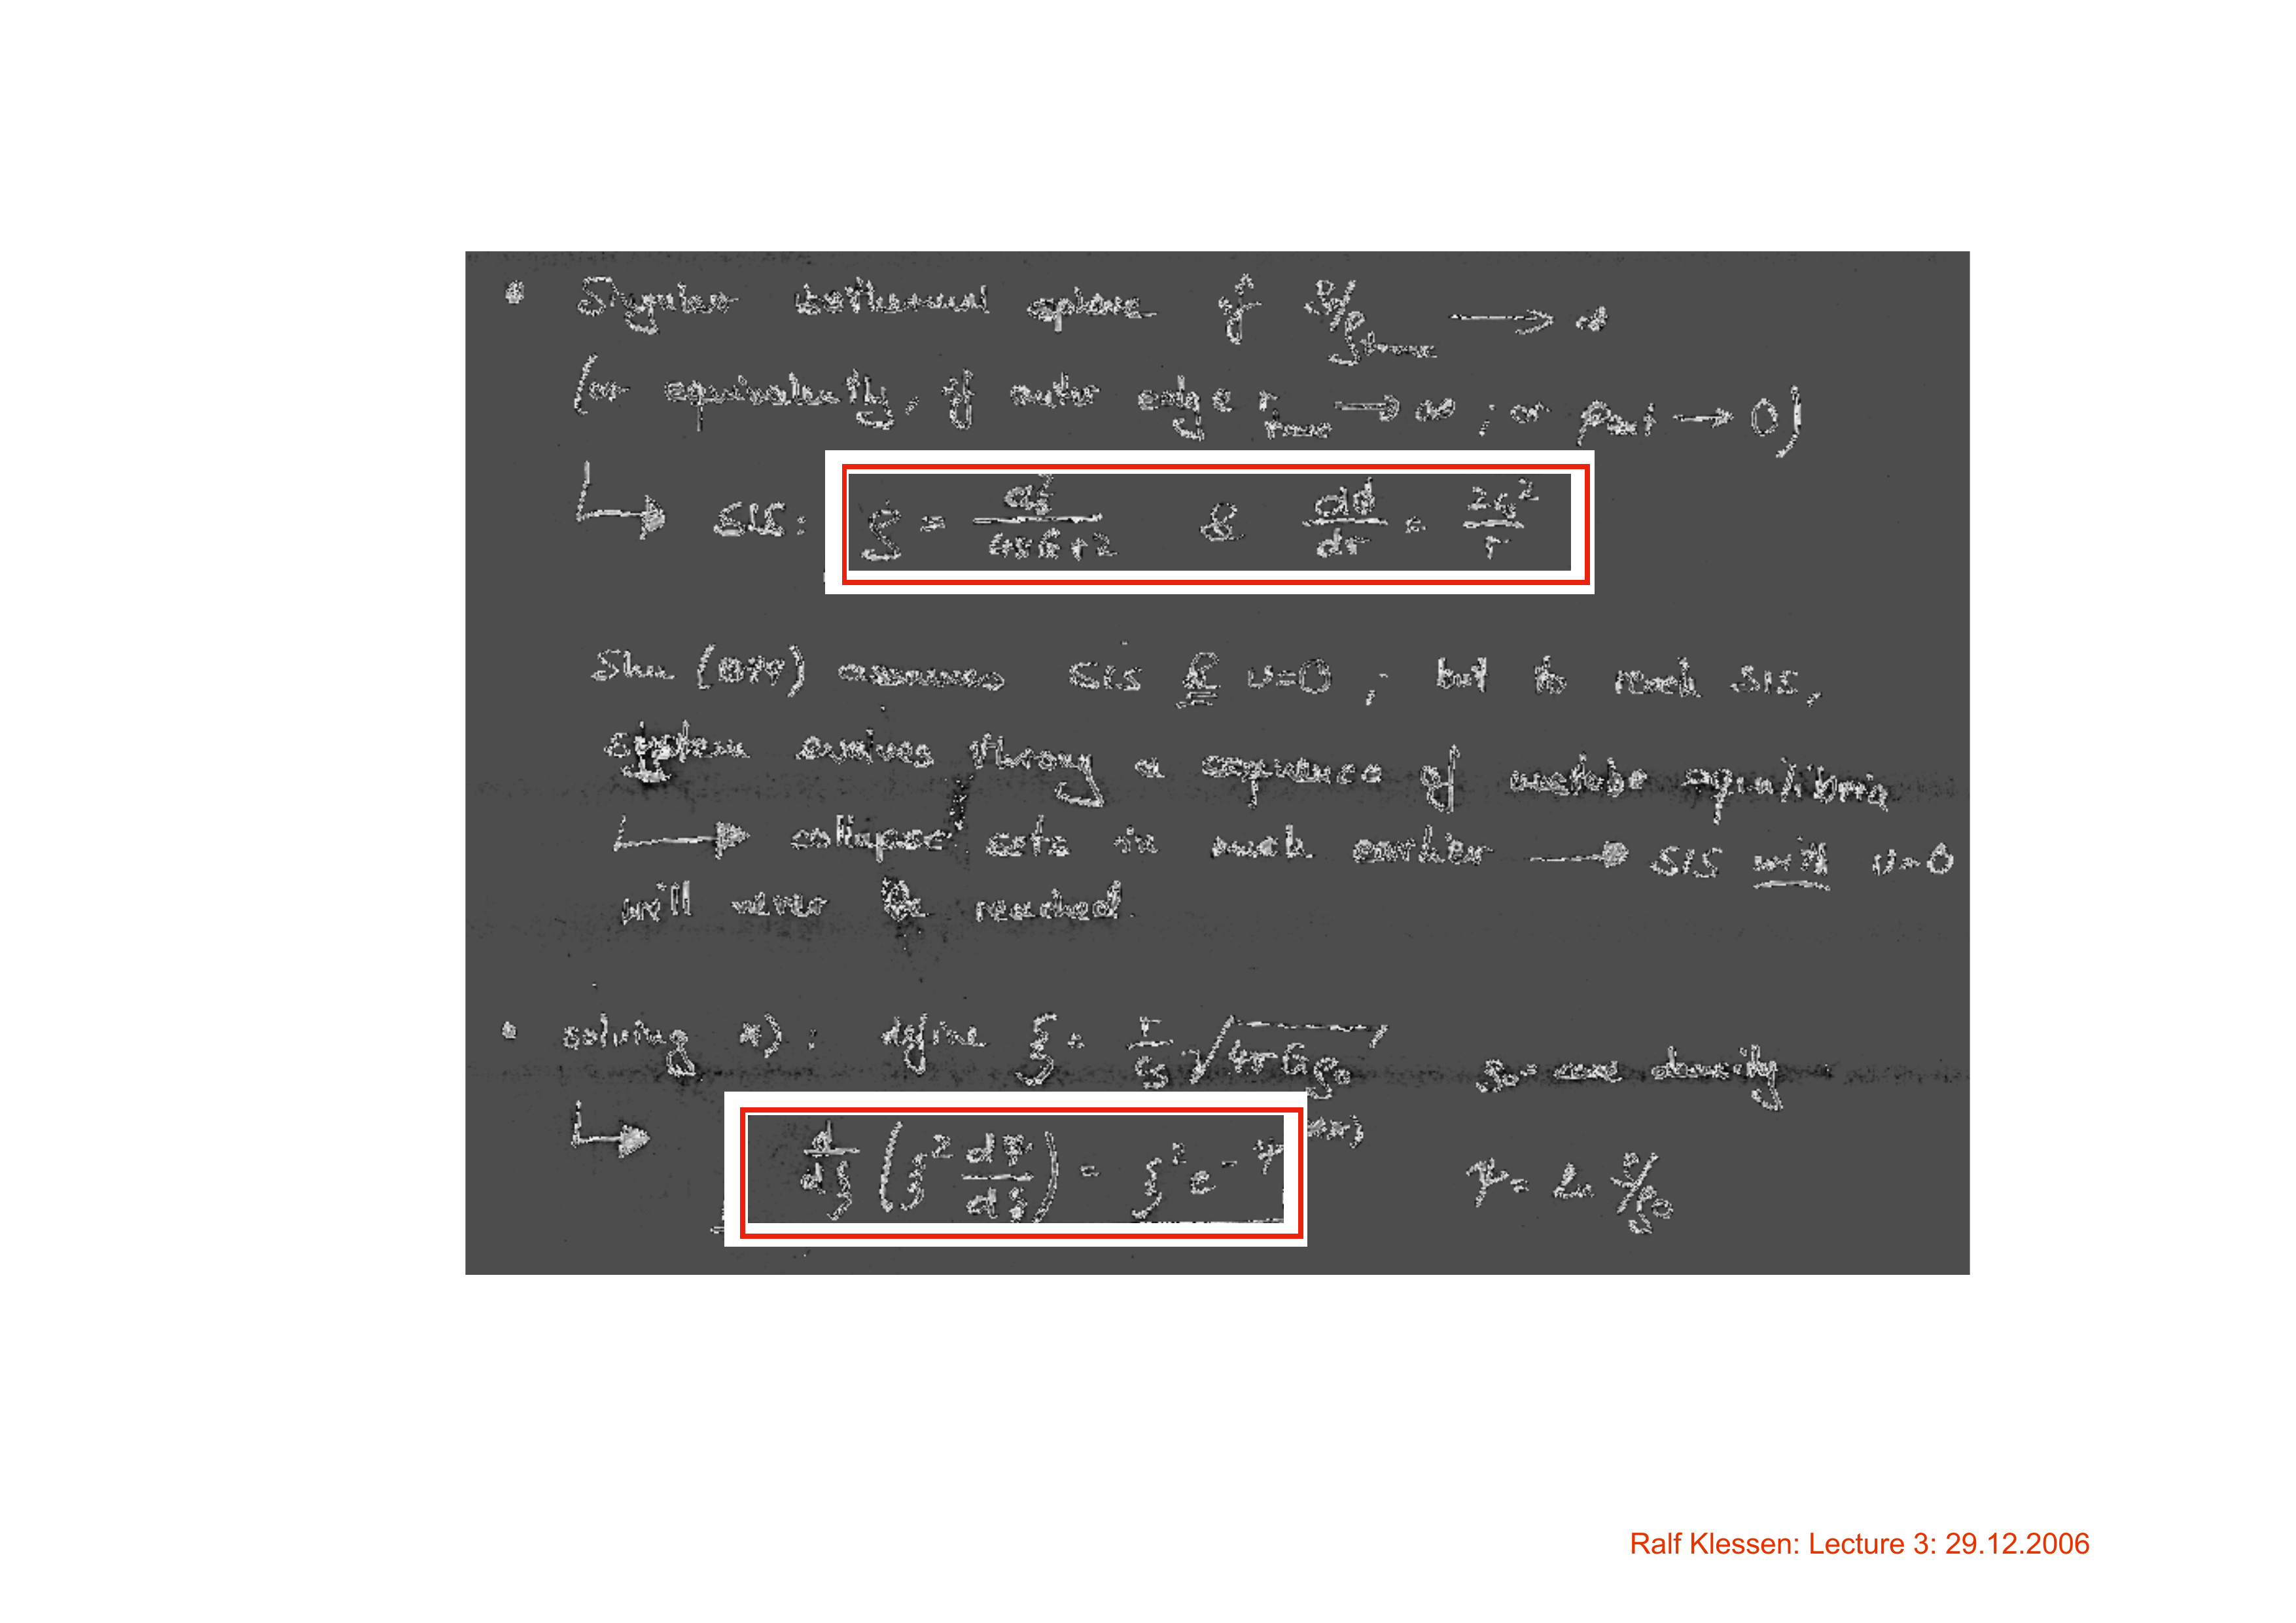 • Singular isothermal sphere if ρ₀/ρ → ∞
(or equivalently, if outer edge r → ∞ ; or Pext → 0)
↳ SIS: ρ = / 4πGr² & dϕ/dr = 2cs²/r
Shu (1977) assumes SIS & v=0 ; but to reach SIS,
system evolves throug a sequence of equilibria
↳ collapse sets in much earlier → SIS with v=0
will never be reached.
• solving *) : define ξ = r/cs √4πGρ₀ ρ₀ = core density
↳ d/dξ (ξ² dΨ/dξ) = ξ² e^-Ψ **) Ψ = ln ρ/ρ₀
Ralf Klessen: Lecture 3: 29.12.2006